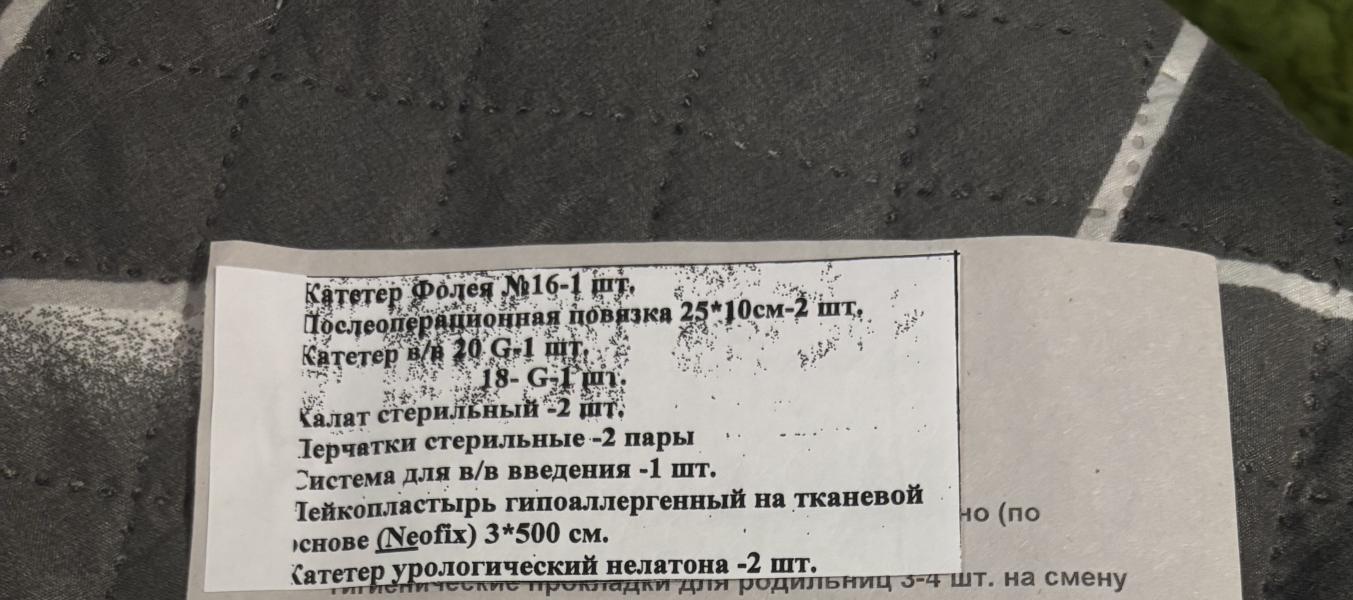 Катетер Фолея №16-1 шт.
Послеоперационная повязка 25*10см-2 шт.
Катетер в/в 20 G-1 шт.
18- G-1 шт.
Халат стерильный -2 шт.
Перчатки стерильные -2 пары
Система для в/в введения -1 шт.
Лейкопластырь гипоаллергенный на тканевой
основе (Neofix) 3*500 см.
но (по
Катетер урологический нелатона -2 шт.
гигиенические прокладки для родильниц 3-4 шт. на смену